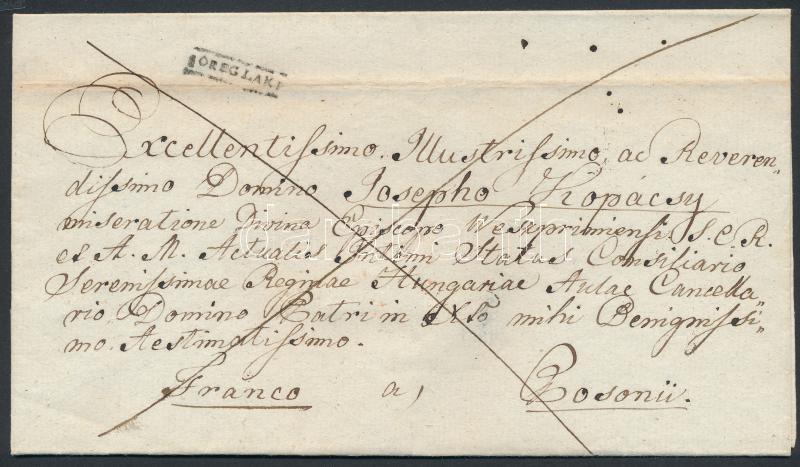 ÖREGLAKI
Excellentissimo, Illustrissimo, ac Reveren„
dissimo Domino Josepho Kopácsy
miseratione Divina Episcopo Weszprimiensi, S.C.R.
et A. M. Actualis Intimi Status Consiliario
Serenissimae Reginae Hungariae Aulae Cancella„
rio, Domino Patri in Xto mihi Benignissi„
mo. Aestimatissimo.
Franco a, Posonii.
darabanth